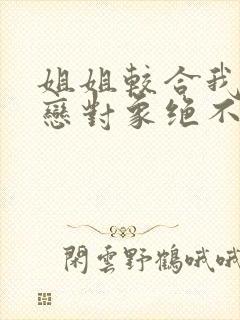 姐姐較合我
戀對象绝不
閑雲野鶴哦哦